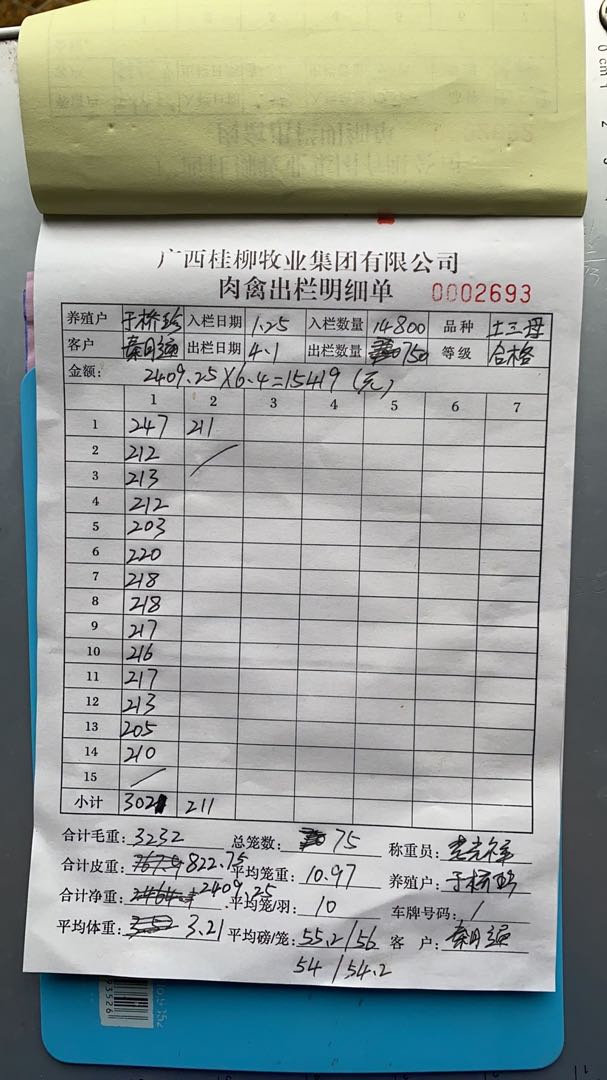 广西桂柳牧业集团有限公司
肉禽出栏明细单 0002693
养殖户 于桥珍 入栏日期 1.25 入栏数量 14800 品种 土三母
客户 秦明强 出栏日期 4.1 出栏数量 750 等级 合格
金额: 2409.25×6.4=15419 (元)
1 2 3 4 5 6 7
1 247 211
2 212
3 213
4 212
5 203
6 220
7 218
8 218
9 217
10 216
11 217
12 213
13 205
14 210
15
小计 3021 211
合计毛重: 3232 总笼数: 75 称重员:
合计皮重: 822.75 平均笼重: 10.97 养殖户: 于桥珍
合计净重: 2409.25 平均笼/羽: 10 车牌号码: /
平均体重: 3.21 平均磅/笼: 55.2/56 客户: 秦明强
54/54.2